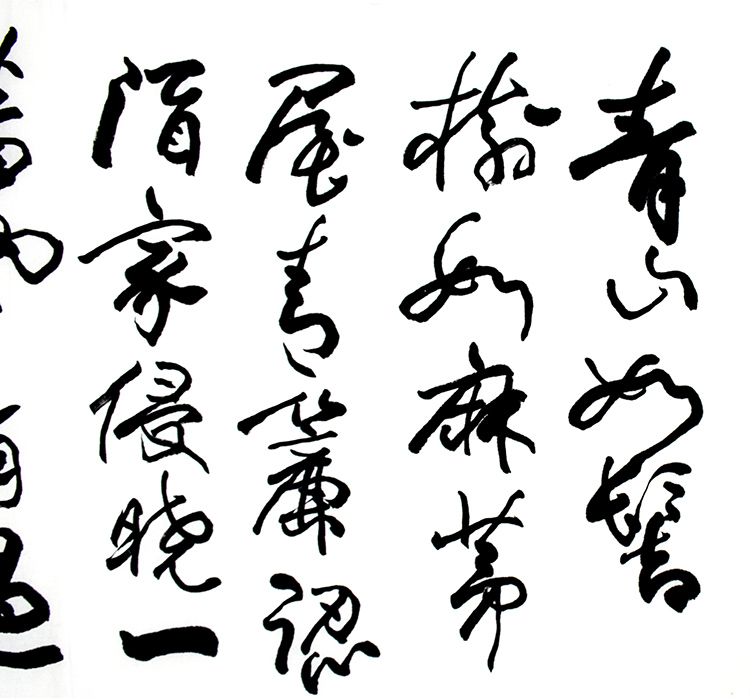 青山如髻
樹如麻茅
屋青簾認
酒家侵曉一